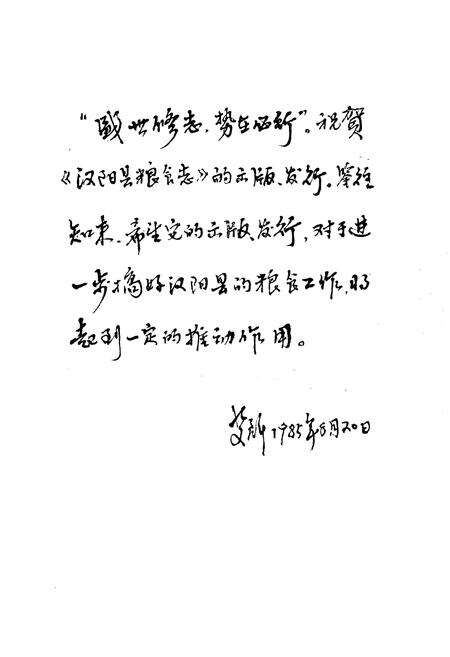 “盛世修志，势在必行”。祝贺
《汉阳县粮食志》的出版、发行。鉴往
知来，希望它的出版、发行，对于进
一步搞好汉阳县的粮食工作，将
起到一定的推动作用。
1985年8月20日